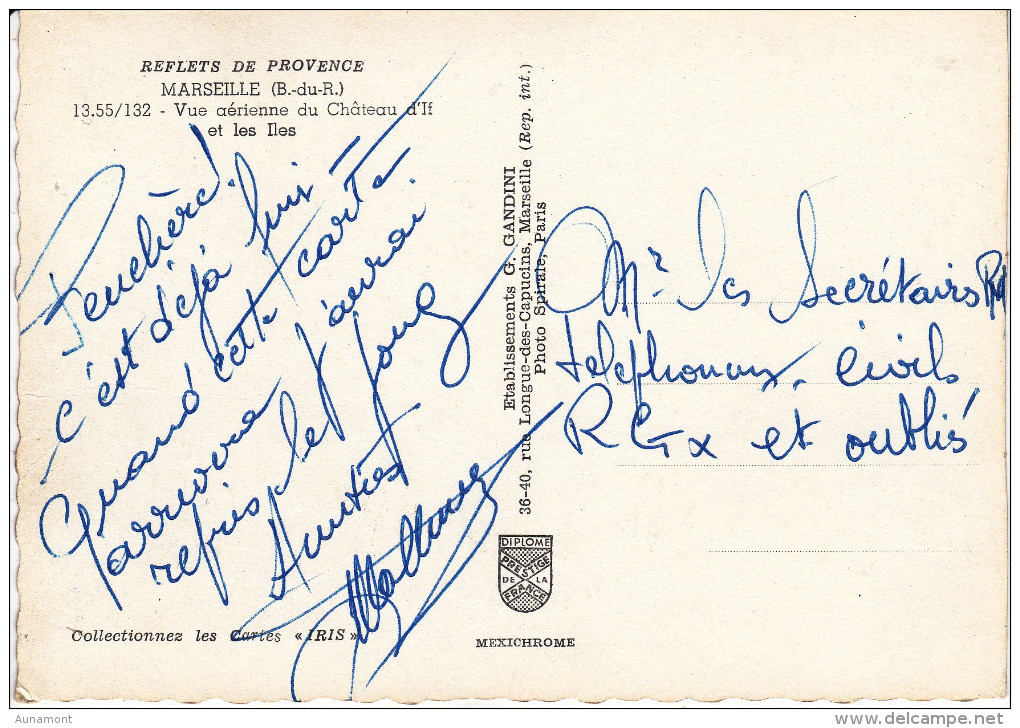 REFLETS DE PROVENCE
MARSEILLE (B.-du-R.)
13.55/132 - Vue aérienne du Château d'If
et les Iles
Peuchère!
c'est déjà fini -
Quand cette carte
arrivera j'aurai
repris le joug
Amitiés
Collectionnez les Cartes « IRIS »
Etablissements G. GANDINI
36-40, rue Longue-des-Capucins, Marseille (Rep. int.)
Photo Spirale, Paris
DIPLOME
PRESTIGE
DE LA
FRANCE
MEXICHROME
Mr les Secrétaires
telephonax, civils
RGx et oubliés
Aunamont
www.delcampe.net